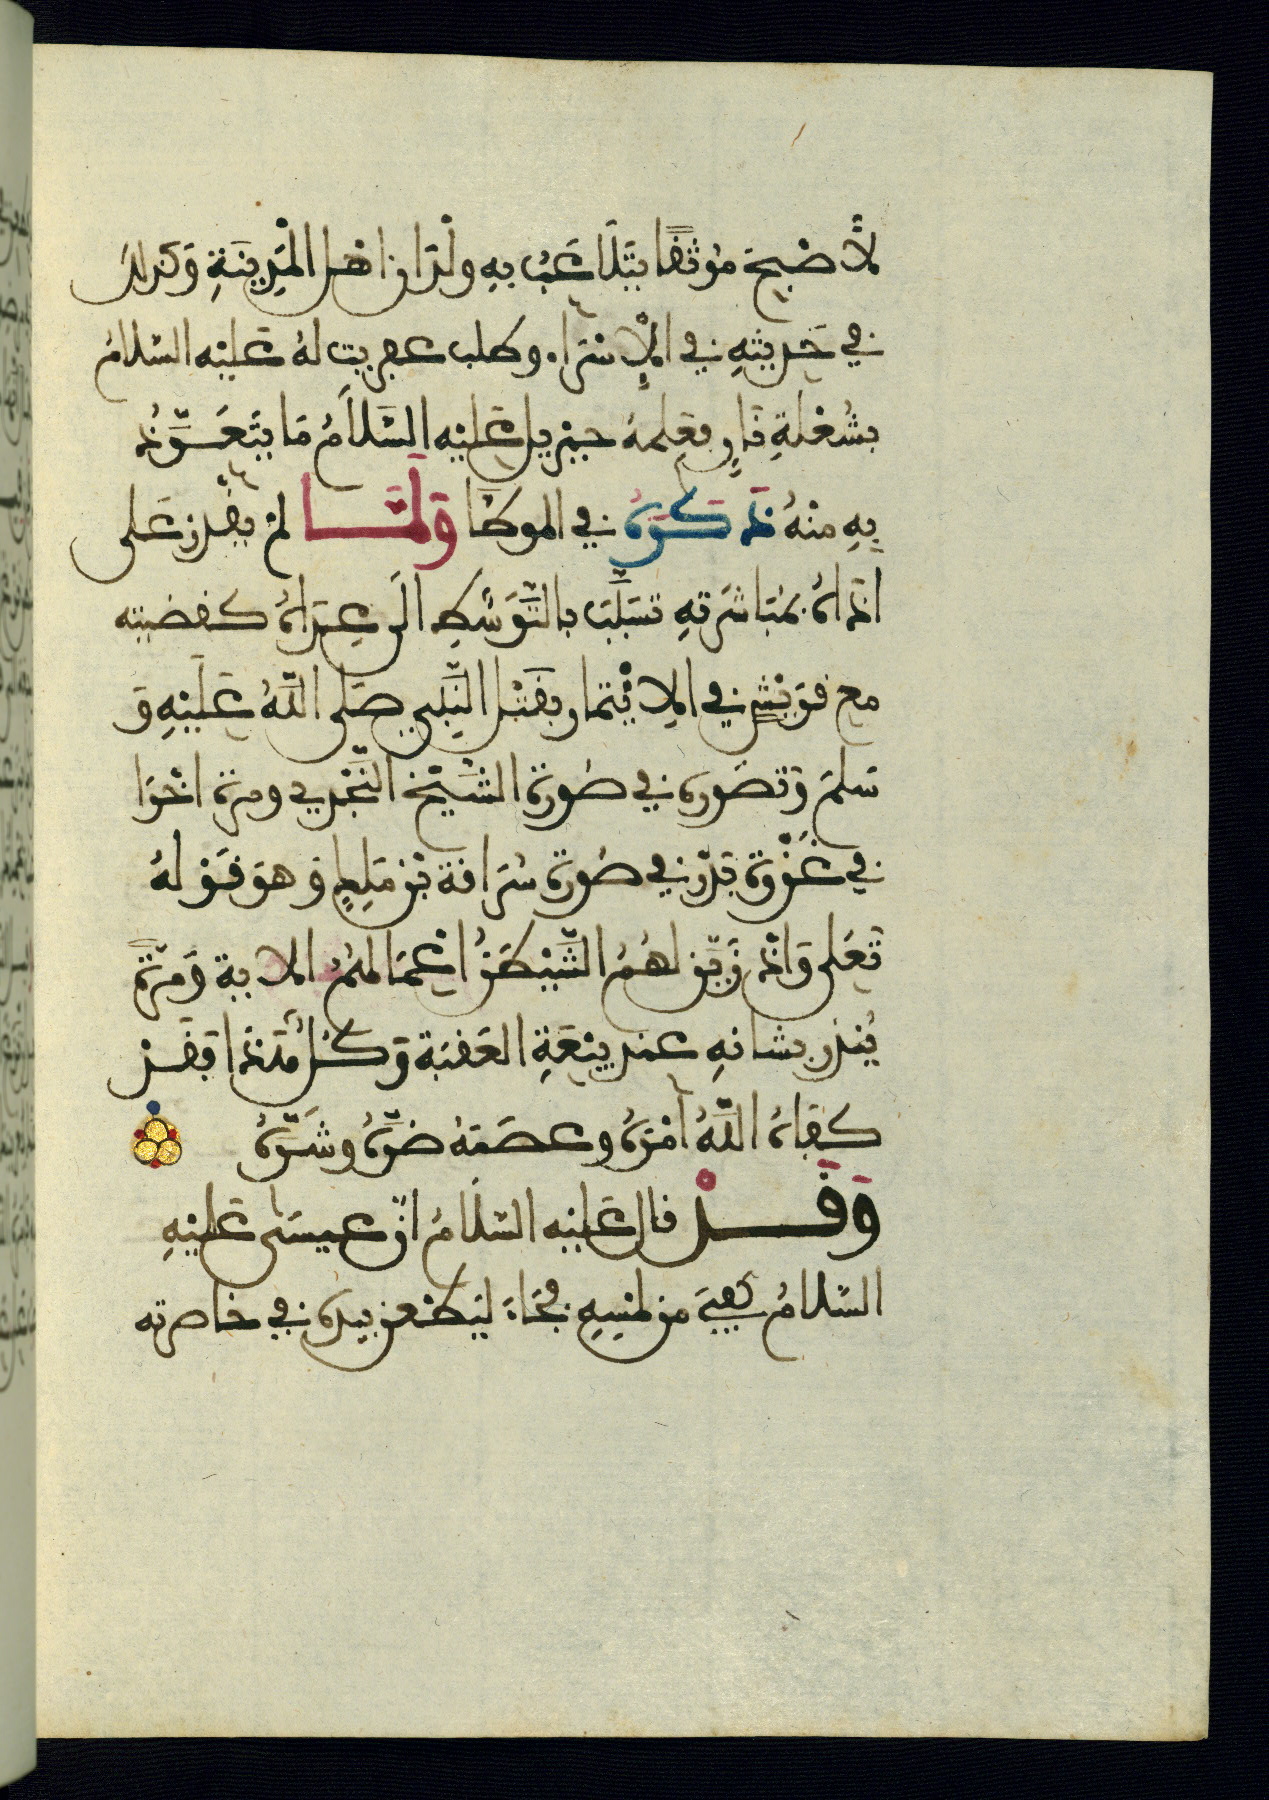 لَأصْبَحَ مُوثَقًا يَتَلَاعَبُ بِهِ وِلْدَانُ اهْلِ الْمَدِينَةِ وَكَذَلِكَ
فِي حَدِيثِهِ فِي الْإِسْرَاءِ وطلب عفريت لهُ عَليْه السّلامُ
بشُعْلَةِ نَارٍ فعلمهُ جبْريل عَليْه السَّلَامُ مَا يَتَعَوَّذُ
بِهِ منْهُ ذَكَرَهُ في الموطّا وَلَمَّا لمْ يقْدِرْ عَلى
اذاهُ بمُبَاشَرَتِهِ تَسَبَّبَ بِالتَّوَسُّطِ الَى عِدَاهُ كقضيته
مع قرَيْشٍ في الِايْتمار بقَتْل النَّبِي صَلى اللَّهُ عَلَيْهِ وَ
سَلمَ وَتصَوره في صُورة الشَّيْخ النَّجْدِي ومرة اخْرَا
في غَزْوَة بَدْر في صُورة سُرَاقة بْن مَلِكٍ وَهوَ قَوْلهُ
تَعَلى وَاذْ زَيَّنَ لهُمُ الشَّيْطَنُ اعْمَالهُمْ الاية وَمرّةً
يُنْذر بشانهِ عند بيْعَةِ العَقبَة وَكُلُّ هَذَا فقَدْ
كفَاهُ اللَّهُ أمْرَهُ وعصَمَهُ ضرَّهُ وشَرَّهُ
وَقَدْ قال عَليْه السّلَامُ انّ عيسَى عَليْهِ
السّلامُ كُفِيَ من لمْسِهِ فجَاءَ ليَطْعن بيده في خاصرته